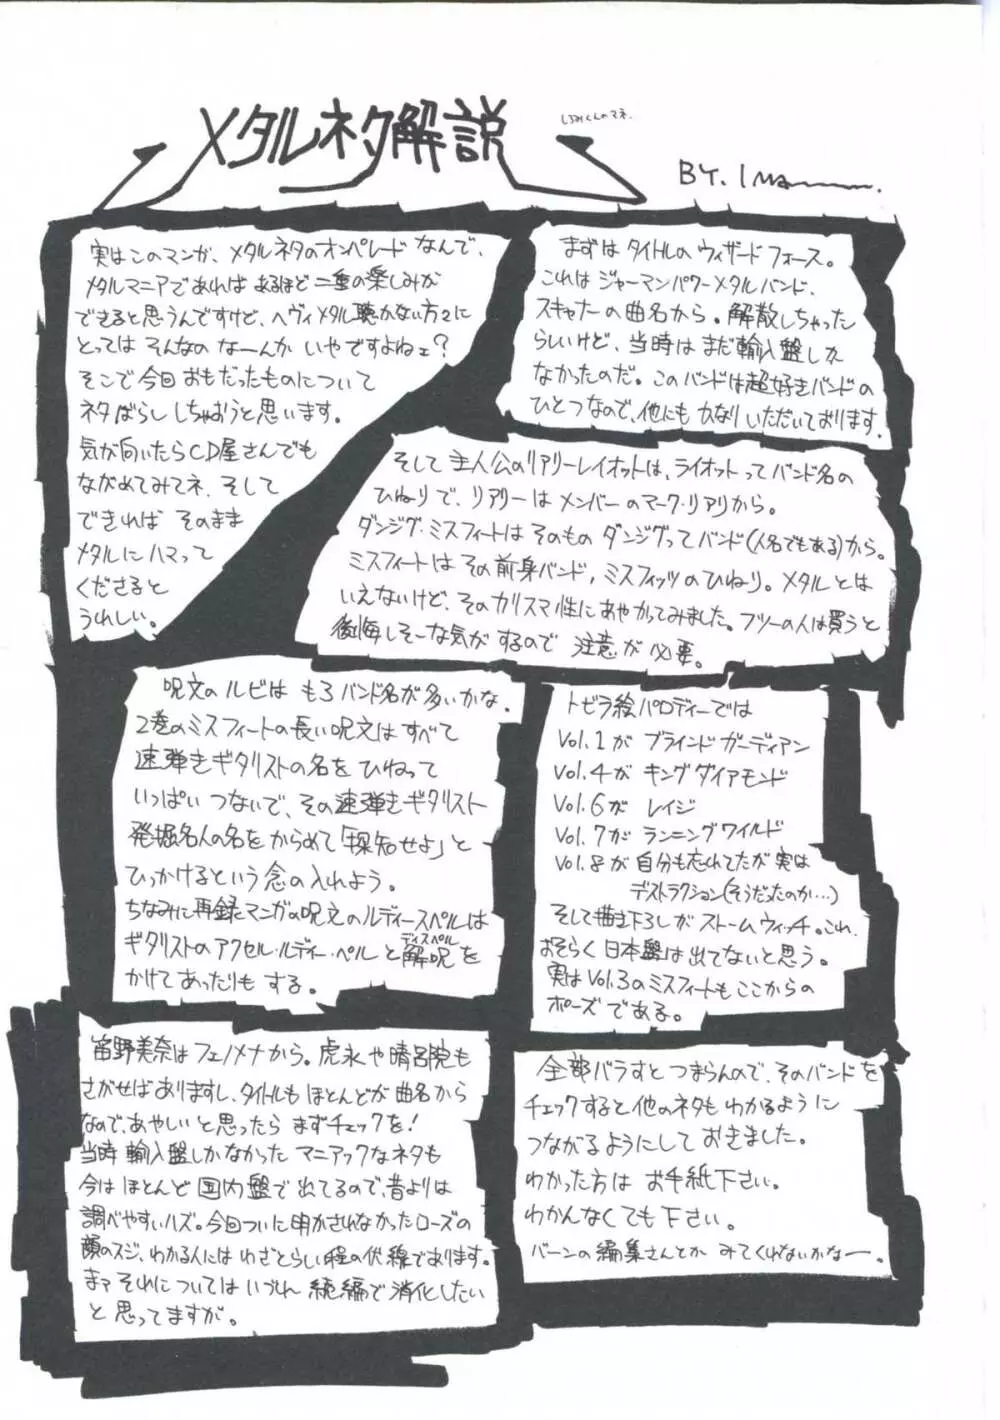 メタルネタ解説
しろみくんのマネ.
BY.
実はこのマンガ、メタルネタのオンパレードなんで、
メタルマニアであればあるほど二重の楽しみが
できると思うんですけど、ヘヴィメタル聴かない方々に
とってはそんなのなーんかいやですよねェ?
そこで今回おもだったものについて
ネタばらししちゃおうと思います。
気が向いたらCD屋さんでも
ながめてみてネ.そして
できればそのまま
メタルにハマって
くださると
うれしい。
まずはタイトルのウィザードフォース。
これはジャーマンパワーメタルバンド、
スキャナーの曲名から。解散しちゃった
らしいけど、当時はまだ輸入盤しか
なかったのだ。このバンドは超好きバンドの
ひとつなので、他にもかなりいただいております。
そして主人公のリアリーレイオットは、ライオットってバンド名の
ひねりで、リアリーはメンバーのマーク・リアリから。
ダンジグ・ミスフィートはそのものダンジグってバンド(人名でもある)から。
ミスフィートはその前身バンド,ミスフィッツのひねり。メタルとは
いえないけど、そのカリスマ性にあやかってみました。フツーの人は買うと
後悔しそーな気がするので注意が必要。
呪文のルビはもろバンド名が多いかな.
2巻のミスフィートの長い呪文はすべて
速弾きギタリストの名をひねって
いっぱいつないで、その速弾きギタリスト
発掘名人の名をからめて「探知せよ」と
ひっかけるという念の入れよう。
ちなみに再録マンガの呪文のルディースペルは
ギタリストのアクセル・ルディー・ペルと解呪を
ディスペル
かけてあったりもする。
トビラ絵パロディーでは
Vol.1がブラインドガーディアン
Vol.4がキングダイアモンド
Vol.6がレイジ
Vol.7がランニングワイルド
Vol.8が自分も忘れてたが実は
デストラクション(そうだったのか…)
そして描き下ろしがストームウィッチ。これ、
おそらく日本盤は出てないと思う。
実はVol.3のミスフィートもここからの
ポーズである。
笛野美奈はフェノメナから。虎永や晴呂院も
さがせばありますし、タイトルもほとんどが曲名から
なので、あやしいと思ったらまずチェックを!
当時輸入盤しかなかったマニアックなネタも
今はほとんど国内盤で出てるので、昔よりは
調べやすいハズ。今回ついに明かされなかったローズの
顔のスジ、わかる人にはわざとらしい程の伏線であります。
まァそれについてはいづれ続編で消化したい
と思ってますが。
全部バラすとつまらんので、そのバンドを
チェックすると他のネタもわかるように
つながるようにしておきました。
わかった方はお手紙下さい。
わかんなくても下さい。
バーンの編集さんとかみてくれないかなー。